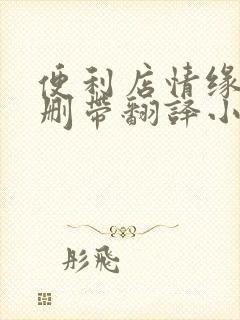 便利店情缘
删带翻译小
彤飛